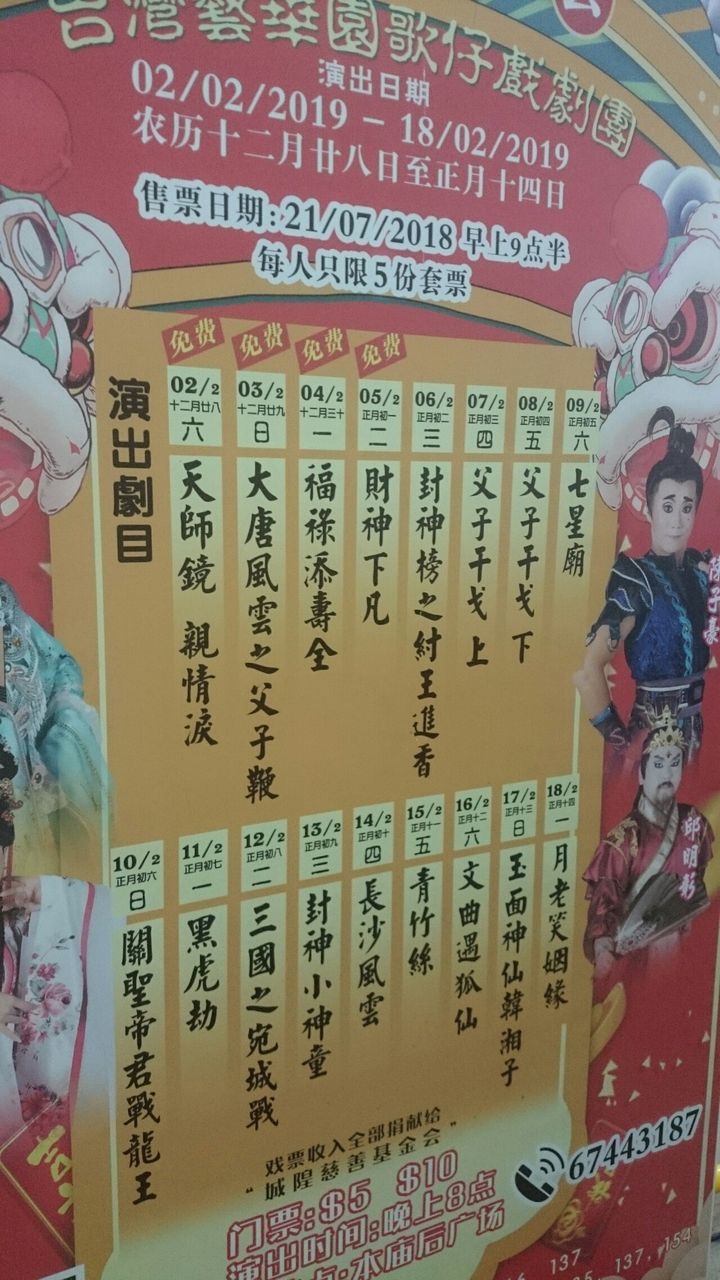 台灣藝華園歌仔戲劇團
演出日期
02/02/2019 - 18/02/2019
农历十二月廿八日至正月十四日
售票日期:21/07/2018 早上9点半
每人只限5份套票
演出劇目
免费
02/2
十二月廿八
六
天師鏡 親情淚
免费
03/2
十二月廿九
日
大唐風雲之父子鞭
免费
04/2
十二月三十
一
福祿添壽全
免费
05/2
正月初一
二
財神下凡
06/2
正月初二
三
封神榜之紂王進香
07/2
正月初三
四
父子干戈 上
08/2
正月初四
五
父子干戈 下
09/2
正月初五
六
七星廟
10/2
正月初六
日
關聖帝君戰龍王
11/2
正月初七
一
黑虎劫
12/2
正月初八
二
三國之宛城戰
13/2
正月初九
三
封神小神童
14/2
正月初十
四
長沙風雲
15/2
正月十一
五
青竹絲
16/2
正月十二
六
文曲遇狐仙
17/2
正月十三
日
玉面神仙韓湘子
18/2
正月十四
一
月老笑姻緣
邱明彰
戏票收入全部捐献给
"城隍慈善基金会"
67443187
门票:$5 $10
演出时间:晚上8点
点:本庙后广场
137
137, 154